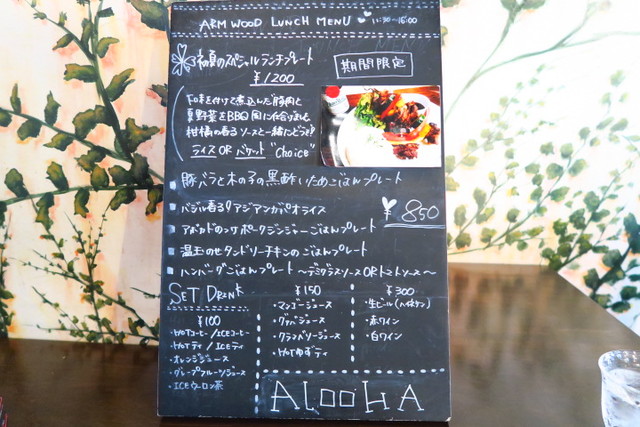 ARM WOOD LUNCH MENU 11:30-16:00
初夏のスペシャルランチプレート
¥1200
期間限定
下味を付けて煮込んだ豚肉と
夏野菜をBBQ風に仕立ました
柑橘の香るソースと一緒にどうぞ
ライス OR バケット "Choice"
豚バラと木の子の黒酢いためごはんプレート
バジル香る!アジアンガパオライス
¥850
アボカドのっけポークジンジャーごはんプレート
温玉のせタンドリーチキンのごはんプレート
ハンバーグごはんプレート 〜デミグラスソース OR トマトソース〜
SET DRINK
¥100
・HOTコーヒー/ICEコーヒー
・HOTティ/ICEティ
・オレンジジュース
・グレープフルーツジュース
・ICEウーロン茶
¥150
・マンゴージュース
・グァバジュース
・クランベリージュース
・HOTゆずティ
¥300
・生ビール
・赤ワイン
・白ワイン
ALOOHA